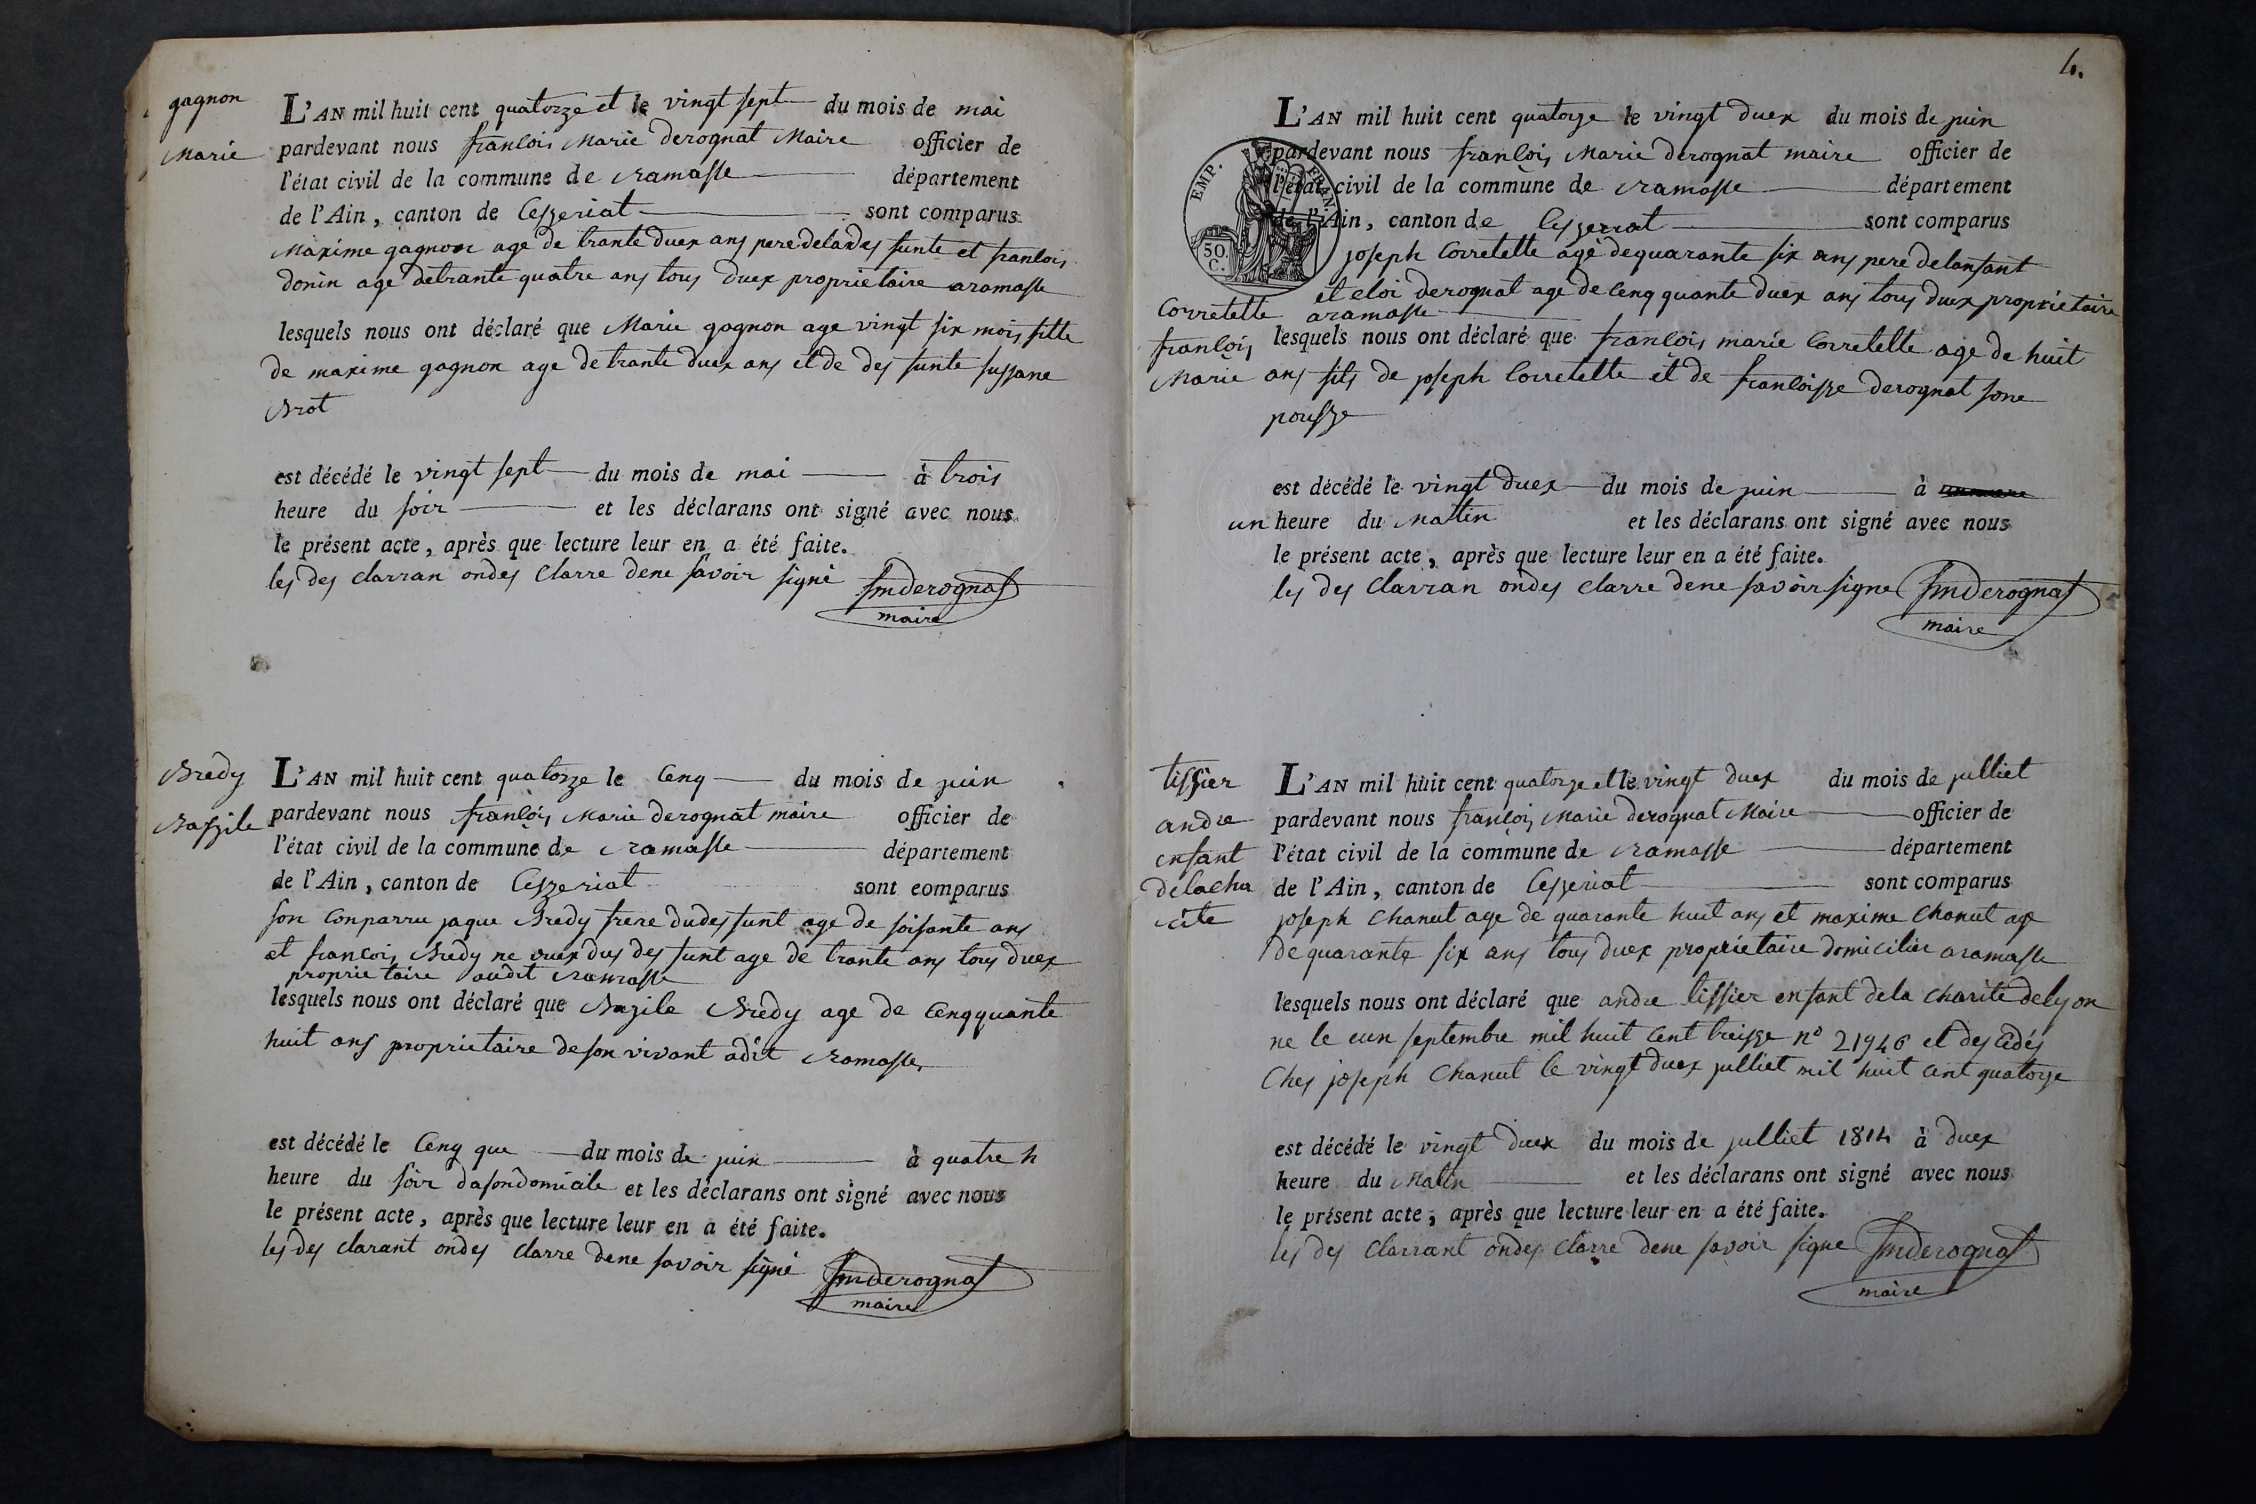 gagnon
Marie
L'AN mil huit cent quatorze et le vingt sept du mois de mai
pardevant nous francois Marie derognat Maire officier de
l'état civil de la commune de ramasse département
de l'Ain, canton de Cesseriat sont comparus
Maxime gagnon age de trante duex ans pere de la des funte et francois
donin age detrante quatre ans tous duex proprietaire aramasse
lesquels nous ont déclaré que Marie gagnon age vingt six mois fille
de maxime gagnon age de trante duex ans et de des funte sussane
Brot
est décédé le vingt sept du mois de mai à trois
heure du soir et les déclarans ont signé avec nous
le présent acte, après que lecture leur en a été faite.
les des clarran ondes clarre dene savoir signé fmderognat
maire
Bredy
Baszile
L'AN mil huit cent quatorze le Cenq du mois de juin
pardevant nous francois Marie derognat maire officier de
l'état civil de la commune de ramasse département
de l'Ain, canton de Cesseriat sont comparus
son Conparru jaque Bredy frere dudes funt age de soisante ans
et francois Bredy ne vuex dus des funt age de trante ans tous duex
proprietaire audit ramasse
lesquels nous ont déclaré que Bazile Bredy age de Cenqquante
huit ans proprietaire deson vivant adit ramasse
est décédé le Cenq que du mois de juin à quatre h
heure du soir dasondomicile et les déclarans ont signé avec nous
le présent acte, après que lecture leur en a été faite.
les des clarant ondes clarre dene savoir signé fmderognat
maire
4.
EMP. FRAN.
50. C.
L'AN mil huit cent quatorze le vingt duex du mois de juin
pardevant nous francois Marie derognat maire officier de
l'état civil de la commune de ramasse département
de l'Ain, canton de Cesseriat sont comparus
joseph Corretette agé dequarante six ans pere delanfant
et eloi derognat age de Cenq quante duex ans tous duex proprietaire
aramasse
Corretette
francois
Marie
lesquels nous ont déclaré que francois marie Corretette age de huit
ans fils de joseph Corretette et de francoisse derognat sone
pousse
est décédé le vingt duex du mois de juin à
un heure du Matin et les déclarans ont signé avec nous
le présent acte, après que lecture leur en a été faite.
les des Clarran ondes clarre dene savoir signe fmderognat
maire
tissier
andre
enfant
delacha
rite
L'AN mil huit cent quatorze et le vingt duex du mois de julliet
pardevant nous francois Marie derognat Maire officier de
l'état civil de la commune de ramasse département
de l'Ain, canton de Cesseriat sont comparus
joseph Chanut age de quarante huit ans et maxime Chanut age
de quarante six ans tous duex proprietaire domicilier aramasse
lesquels nous ont déclaré que andre tissier enfant dela charité delyon
ne le eun septembre mil huit Cent treisse n° 21946 et des cédés
Ches joseph Chanut le vingt duex julliet mil huit cent quatorze
est décédé le vingt duex du mois de julliet 1814 à duex
heure du Matin et les déclarans ont signé avec nous
le présent acte, après que lecture leur en a été faite.
les des Clarrant ondes clarre dene savoir signe fmderognat
maire